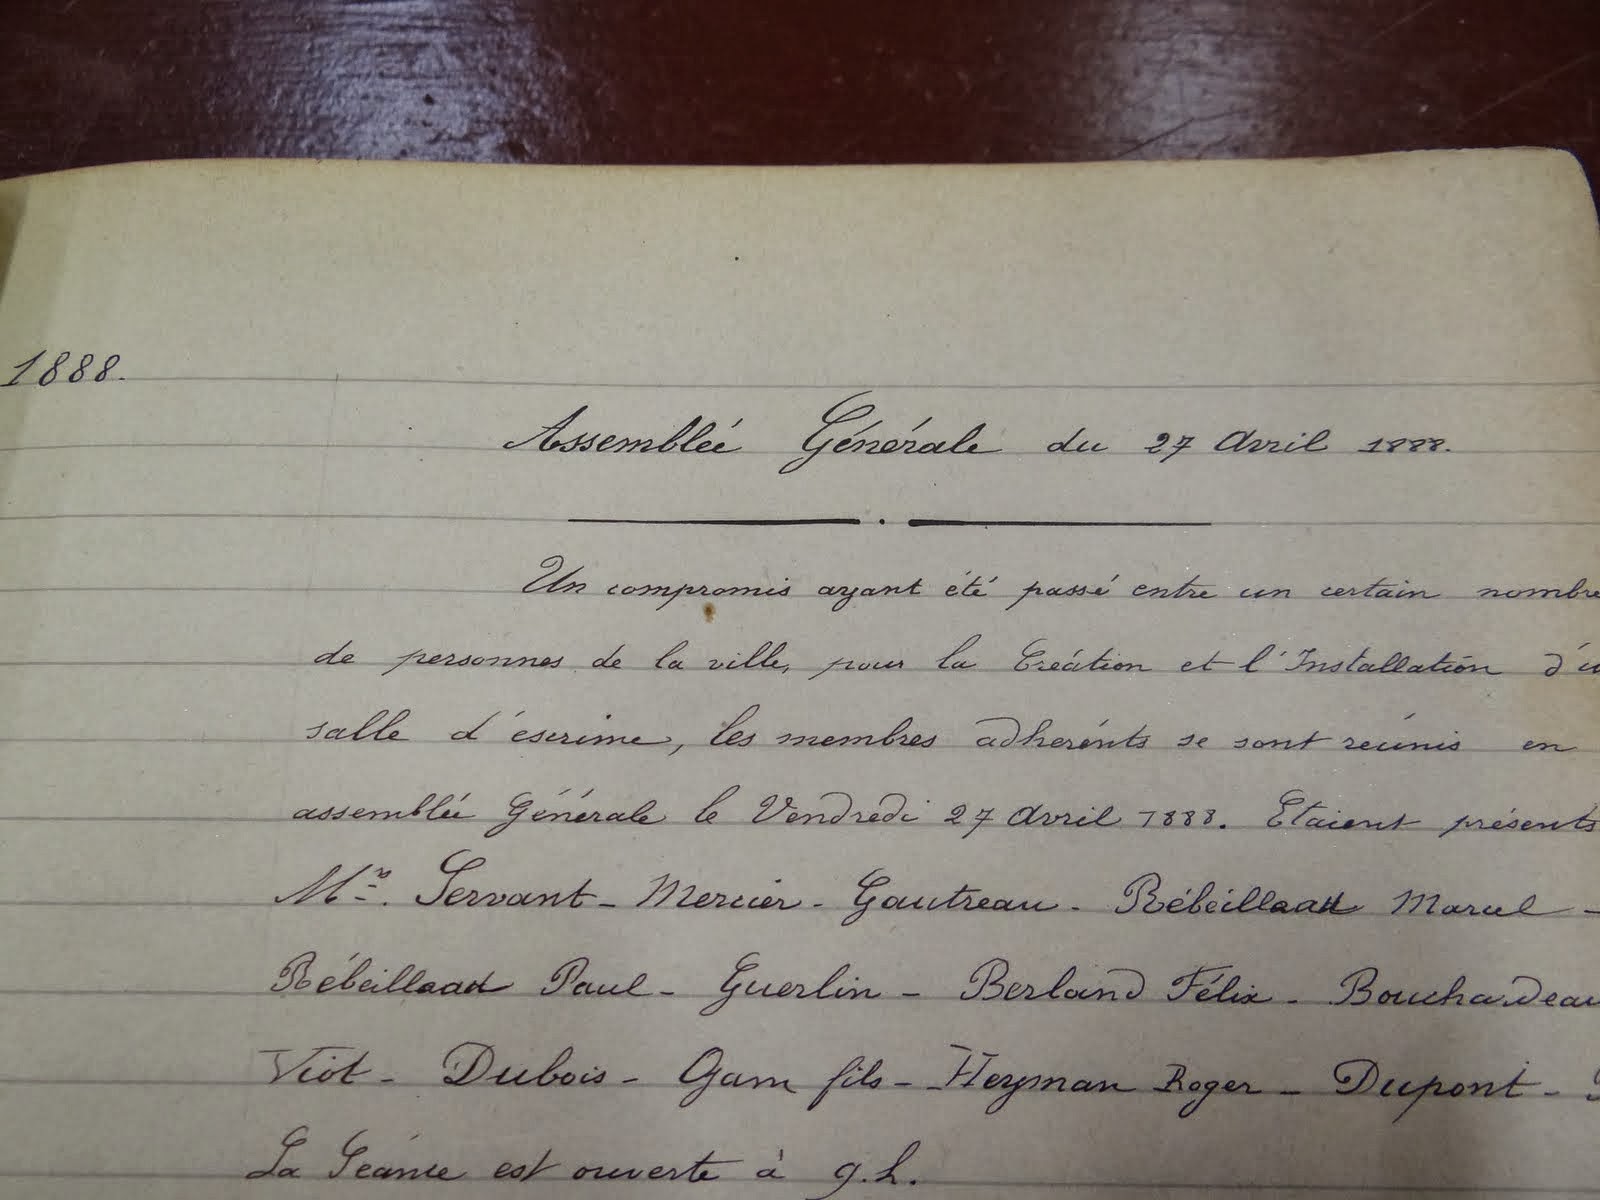 1888.
Assemblée Générale du 27 Avril 1888.
Un compromis ayant été passé entre un certain nombre
de personnes de la ville, pour la Création et l'Installation d'u
salle d'éscrime, les membres adherénts se sont réunis en
assemblée Générale le Vendredi 27 Avril 1888. Etaient présents
Mrs. Servant - Mercier - Gautreau - Rébeillaud Marcel -
Rébeillaud Paul - Guerlin - Berland Félix - Bouchardeau
Viot - Dubois - Gam fils - Heyman Roger - Dupont -
La Séance est ouverte à 9.h.